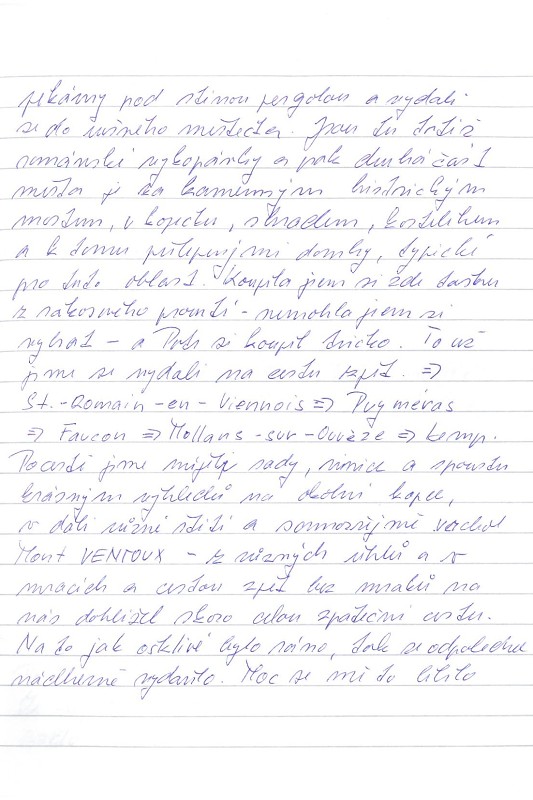 pekárny pod stinou pergolou a vydali
se do rušného městečka. Jsou tu totiž
románské vykopávky a pak druhá část
města je za kamenným historickým
mostem, v kopečku, s hradem, kostelíkem
a k tomu přilepenými domky, typické
pro tuto oblast. Koupila jsem si zde tašku
z rákosového proutí - nemohla jsem si
vybrat - a Petr si koupil tričko. To už
jsme se vydali na cestu zpět. ⇒
St.-Romain-en-Viennois ⇒ Puyméras
⇒ Faucon ⇒ Mollans-sur-Ouvèze ⇒ kemp.
Po cestě jsme míjely sady, vinice a spoustu
krásným výhledů na okolní kopce,
v dáli různé štíty a samozřejmě vrchol
Mont VENTOUX - z různých úhlů a v
mracích a cestou zpět bez mraků na
nás dohlížel skoro celou zpáteční cestu.
Na to jak ošklivé bylo ráno, tak se odpoledne
nádherně vydařilo. Moc se mi to líbilo